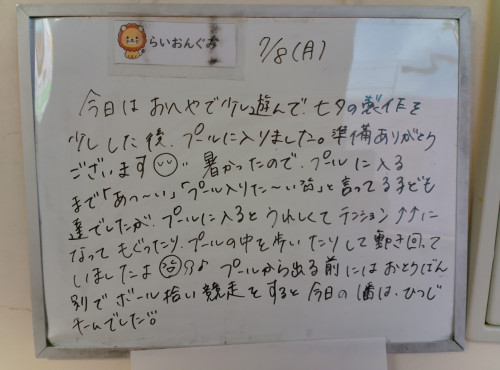 らいおんぐみ
7/8(月)
今日はおへやで少し遊んで、七夕の製作を
少しした後、プールに入りました。準備ありがとう
ございます 暑かったので、プールに入る
まで「あっ〜い」「プール入りた〜い」と言ってる子ども
達でしたが、プールに入るとうれしくてテンション↑↑に
なってもぐったり、プールの中を歩いたりして動き回って
いましたよ♪ プールから出る前にはおとうばん
別でボール拾い競走をすると今日の1番は、ひつじ
チームでした。